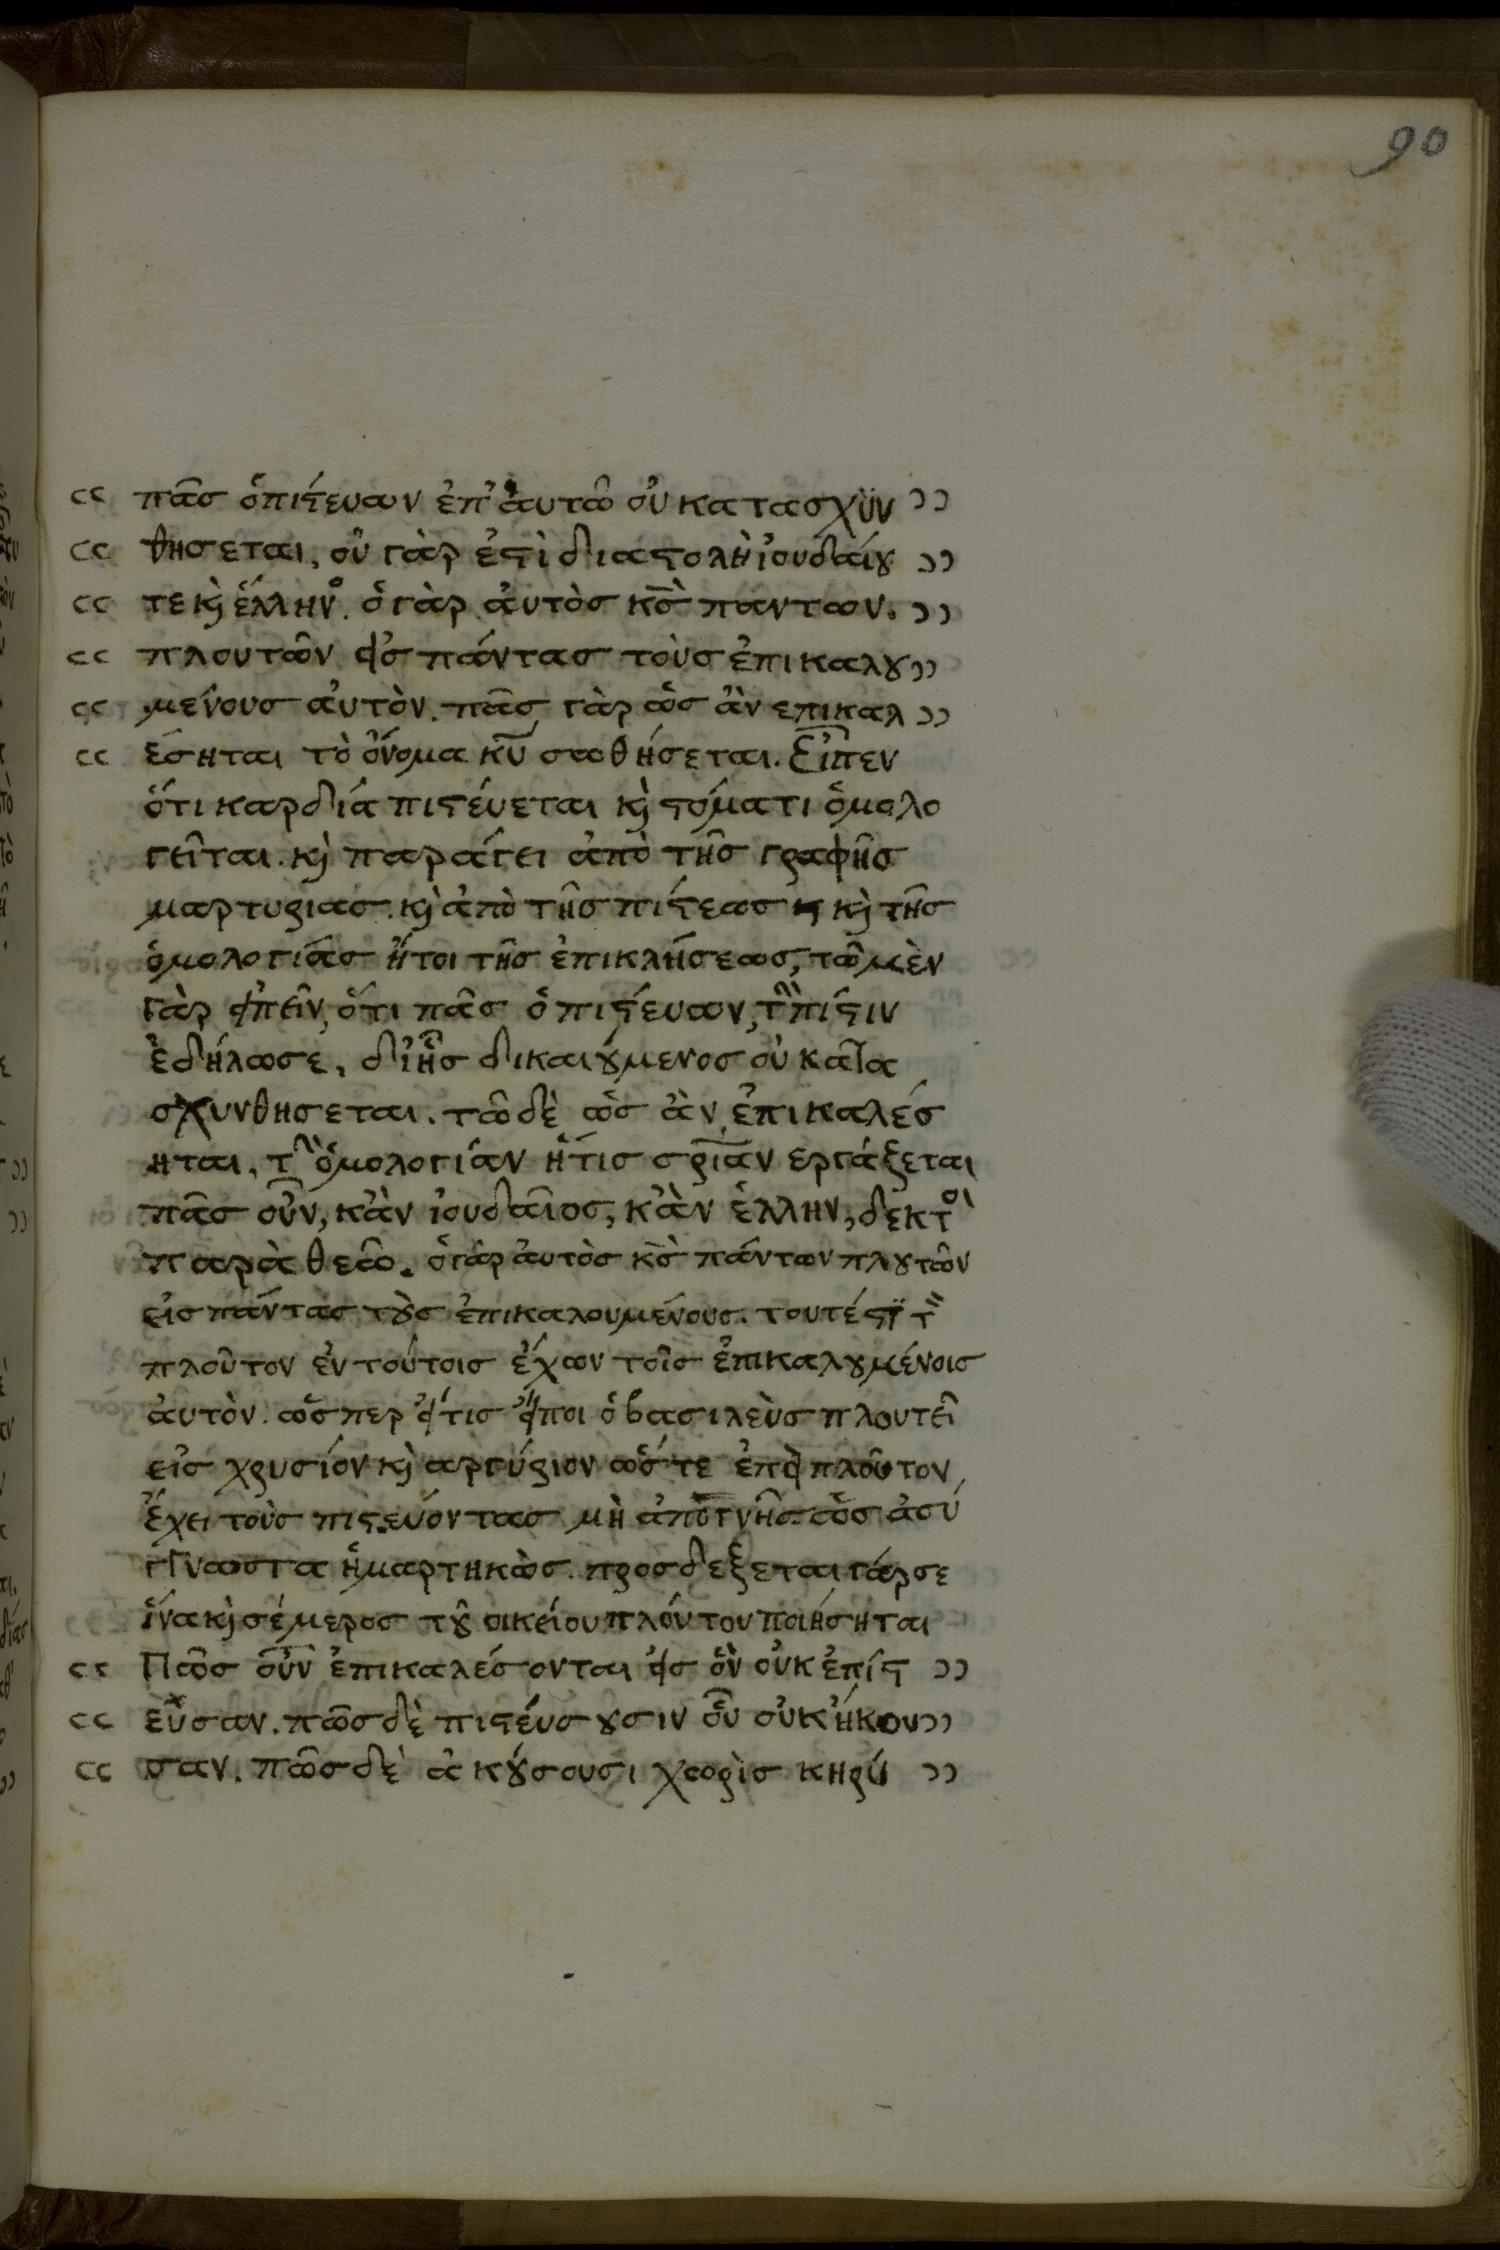 90
cc πᾶσ ὁπιϛευων ἐπ' ἀυτῶ οὐ κατασχϋν ))
cc θησεται, οὐ γὰρ ἐϛὶ διαϛολὴ ἰουδαίȣ ))
cc τε κὶ ἑλλην⁰. ὁ γὰρ ἀυτὸσ κ̅ς̅ παντων. ))
cc πλουτῶν εἰσ πάντασ τοὺσ ἐπικαλȣ ))
cc μένουσ αὐτὸν. πᾶσ γὰρ ὡσ ἀν επικαλ ))
cc έσηται τὸ ὄνομα κ̅υ̅ σωθήσεται. Εἶπεν
ὅτι καρδία πιϛέυεται κὶ ϛόματι ὁμολο
γεῖται. κὶ παράγει ἀπὸ τῆσ γραφῆσ
μαρτυριασ. κὶ ἀπὸ τῆσ πίϛεωσ κὶ τῆσ
ὁμολογίασ ἤτοι τῆσ ἐπικλήσεωσ, τῶ μὲν
γὰρ εἰπεῖν, ὅτι πᾶσ ὁ πιϛέυων, τὴν πίϛιν
ἐδήλωσε, δι ἧσ δικαιȣμενοσ οὐ κατα
σχυνθησεται. τῶ δὲ ὡσ ἀν ἐπικαλέσ
ηται, τὴν ὁμολογίαν ἥτισ σ̅ρ̅ι̅αν εργάζεται
πᾶσ οὖν, κἀν ἰουδαῖοσ, κἀν ἑλλην, δεκτὸσ
παρὰ θεῶ. ὁ γὰρ ἀυτὸσ κ̅ς̅ πάντων πλȣτῶν
εἰσ πάντασ τȣ̀σ ἐπικαλουμένουσ. τουτέϛϊ τὸν
πλοῦτον ἐν τούτοισ ἔχων τοῖσ ἐπικαλȣμένοισ
ἀυτὸν. ὥσπερ εἴ τισ εἴποι ὁ βασιλεὺσ πλουτεῖ
εἰσ χρυσίον κὶ αργύριον ὥστε ἐπεὶ πλοῦτον
ἔχει τοὺσ πιϛεύοντασ μὴ ἀπογνῆσ ὡσ ἀσύ
γγνωστα ἡμαρτηκὼσ. προσδεξεται γάρ σε
ἵνα κὶ σέ μεροσ τȣ̃ οικείου πλόυτου ποιήσηται
cc Πῶσ οὖν ἐπικαλέσονται εἰσ ὃν οὐκ ἐπίϛ ))
cc εῦσαν. πῶσ δὲ πιϛέυσȣσιν οὗ οὐκ ἤκου ))
cc σαν. πῶσ δὲ ἀκȣ́σουσι χωρὶσ κηρύ ))